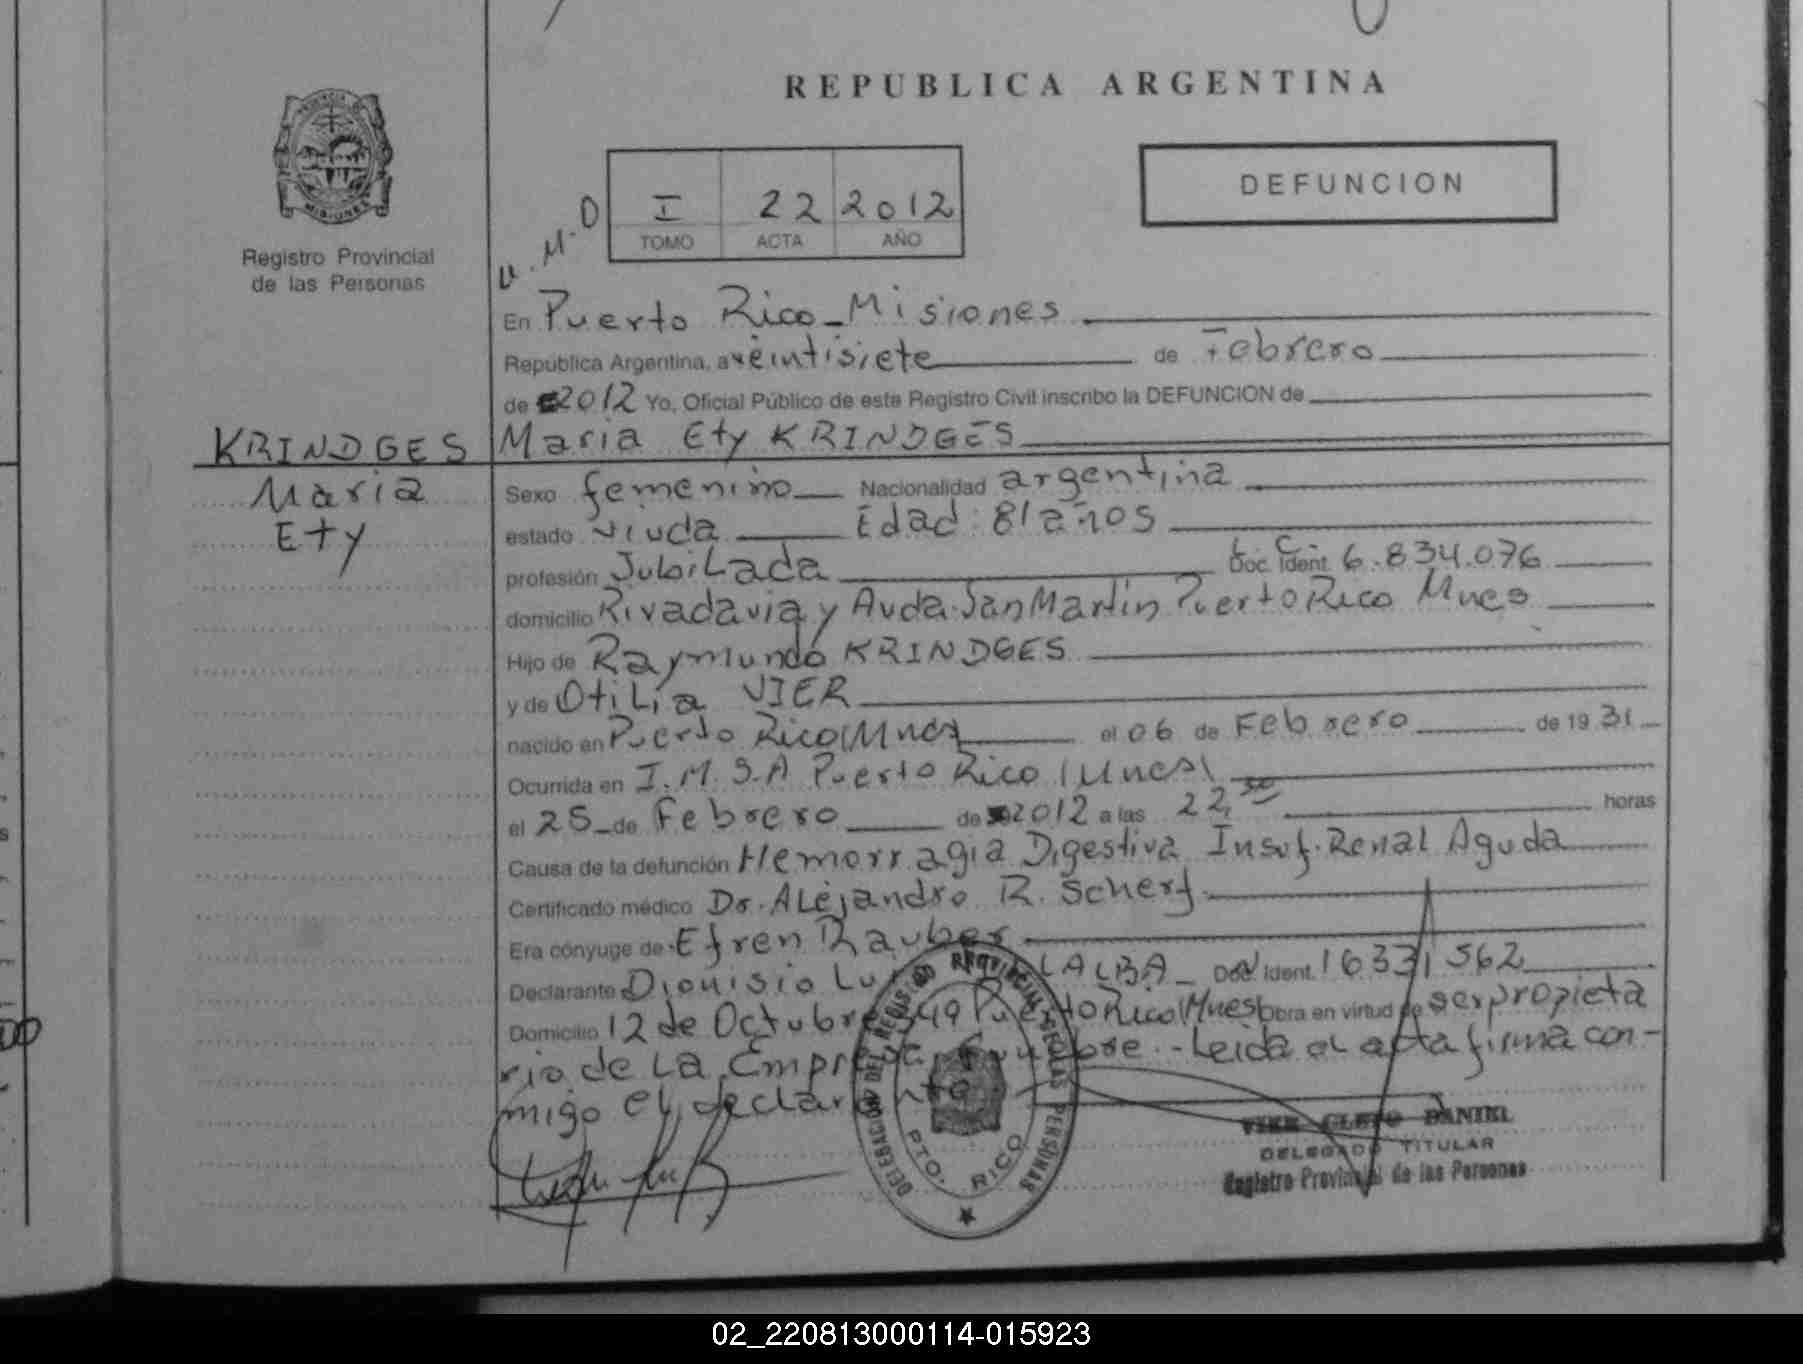 REPUBLICA ARGENTINA
PROVINCIA DE
MISIONES
Registro Provincial
de las Personas
DEFUNCION
I 22 2012
TOMO ACTA AÑO
En Puerto Rico - Misiones
República Argentina, a veintisiete de Febrero
de 2012 Yo, Oficial Público de este Registro Civil inscribo la DEFUNCION de
KRINDGES Maria Ety KRINDGES
Maria
Ety
Sexo femenino Nacionalidad argentina
estado viuda Edad: 81 años
profesión JubiLada L.C. Doc. Ident. 6.834.076
domicilio Rivadavia y Avda. San Martin Puerto Rico Mnes
Hijo de Raymundo KRINDGES
y de OtiLia VIER
nacido en Puerto Rico (Mnes) el 06 de Febrero de 19 31
Ocurrida en I.M.S.A Puerto Rico (Mnes)
el 25 de Febrero de 2012 a las 22,30 horas
Causa de la defunción Hemorragia Digestiva Insuf. Renal Aguda
Certificado médico Dr. ALejandro R. Scherf
Era cónyuge de Efren Rauber
Declarante Dionisio LALBA Doc. Ident. 16331562
Domicilio 12 de Octubre Puerto Rico (Mnes) Obra en virtud de ser propieta
rio de La Empresa Funebre. - Leida el acta firma con-
migo el declarante
DELEGACION DEL REGISTRO PROVINCIAL DE LAS PERSONAS
PTO. RICO
DANIEL
DELEGADO TITULAR
Registro Provincial de las Personas
02_220813000114-015923